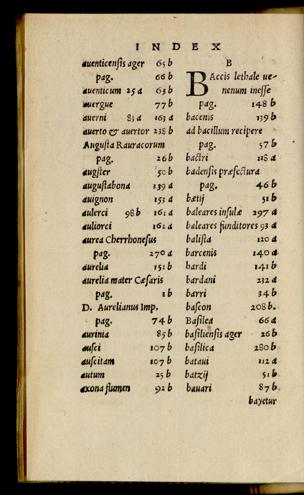 INDEX
auenticensis ager 65 b
pag. 66 b
auenticum 25 a 65 b
auergue 77 b
auerni 83 a 163 a
auerto & auertor 238 b
Augusta Rauracorum
pag. 26 b
augster 50 b
augustabona 139 a
auignon 153 a
aulerci 98 b 162 a
auliorci 162 a
aurea Cherrhonesus
pag. 270 a
aurelia 151 b
aurelia mater Cæsaris
pag. 1 b
D. Aurelianus Imp.
pag. 74 b
aurinia 85 b
ausci 107 b
auscitam 107 b
autum 25 b
axona flumen 92 b
B
BAccis lethale ue-
nenum inesse
pag. 148 b
bacenis 139 b
ad bacillum recipere
pag. 57 b
bactri 118 a
badensis præfectura
pag. 46 b
bætij 51 b
baleares insulæ 297 a
baleares funditores 93 a
balista 120 a
barcenis 140 a
bardi 141 b
bardani 232 a
barri 34 b
bascon 208 b.
Basilea 66 a
basiliensis ager 26 b
basilica 280 b
bataui 112 a
batzij 51 b
bauari 87 b
bayetur